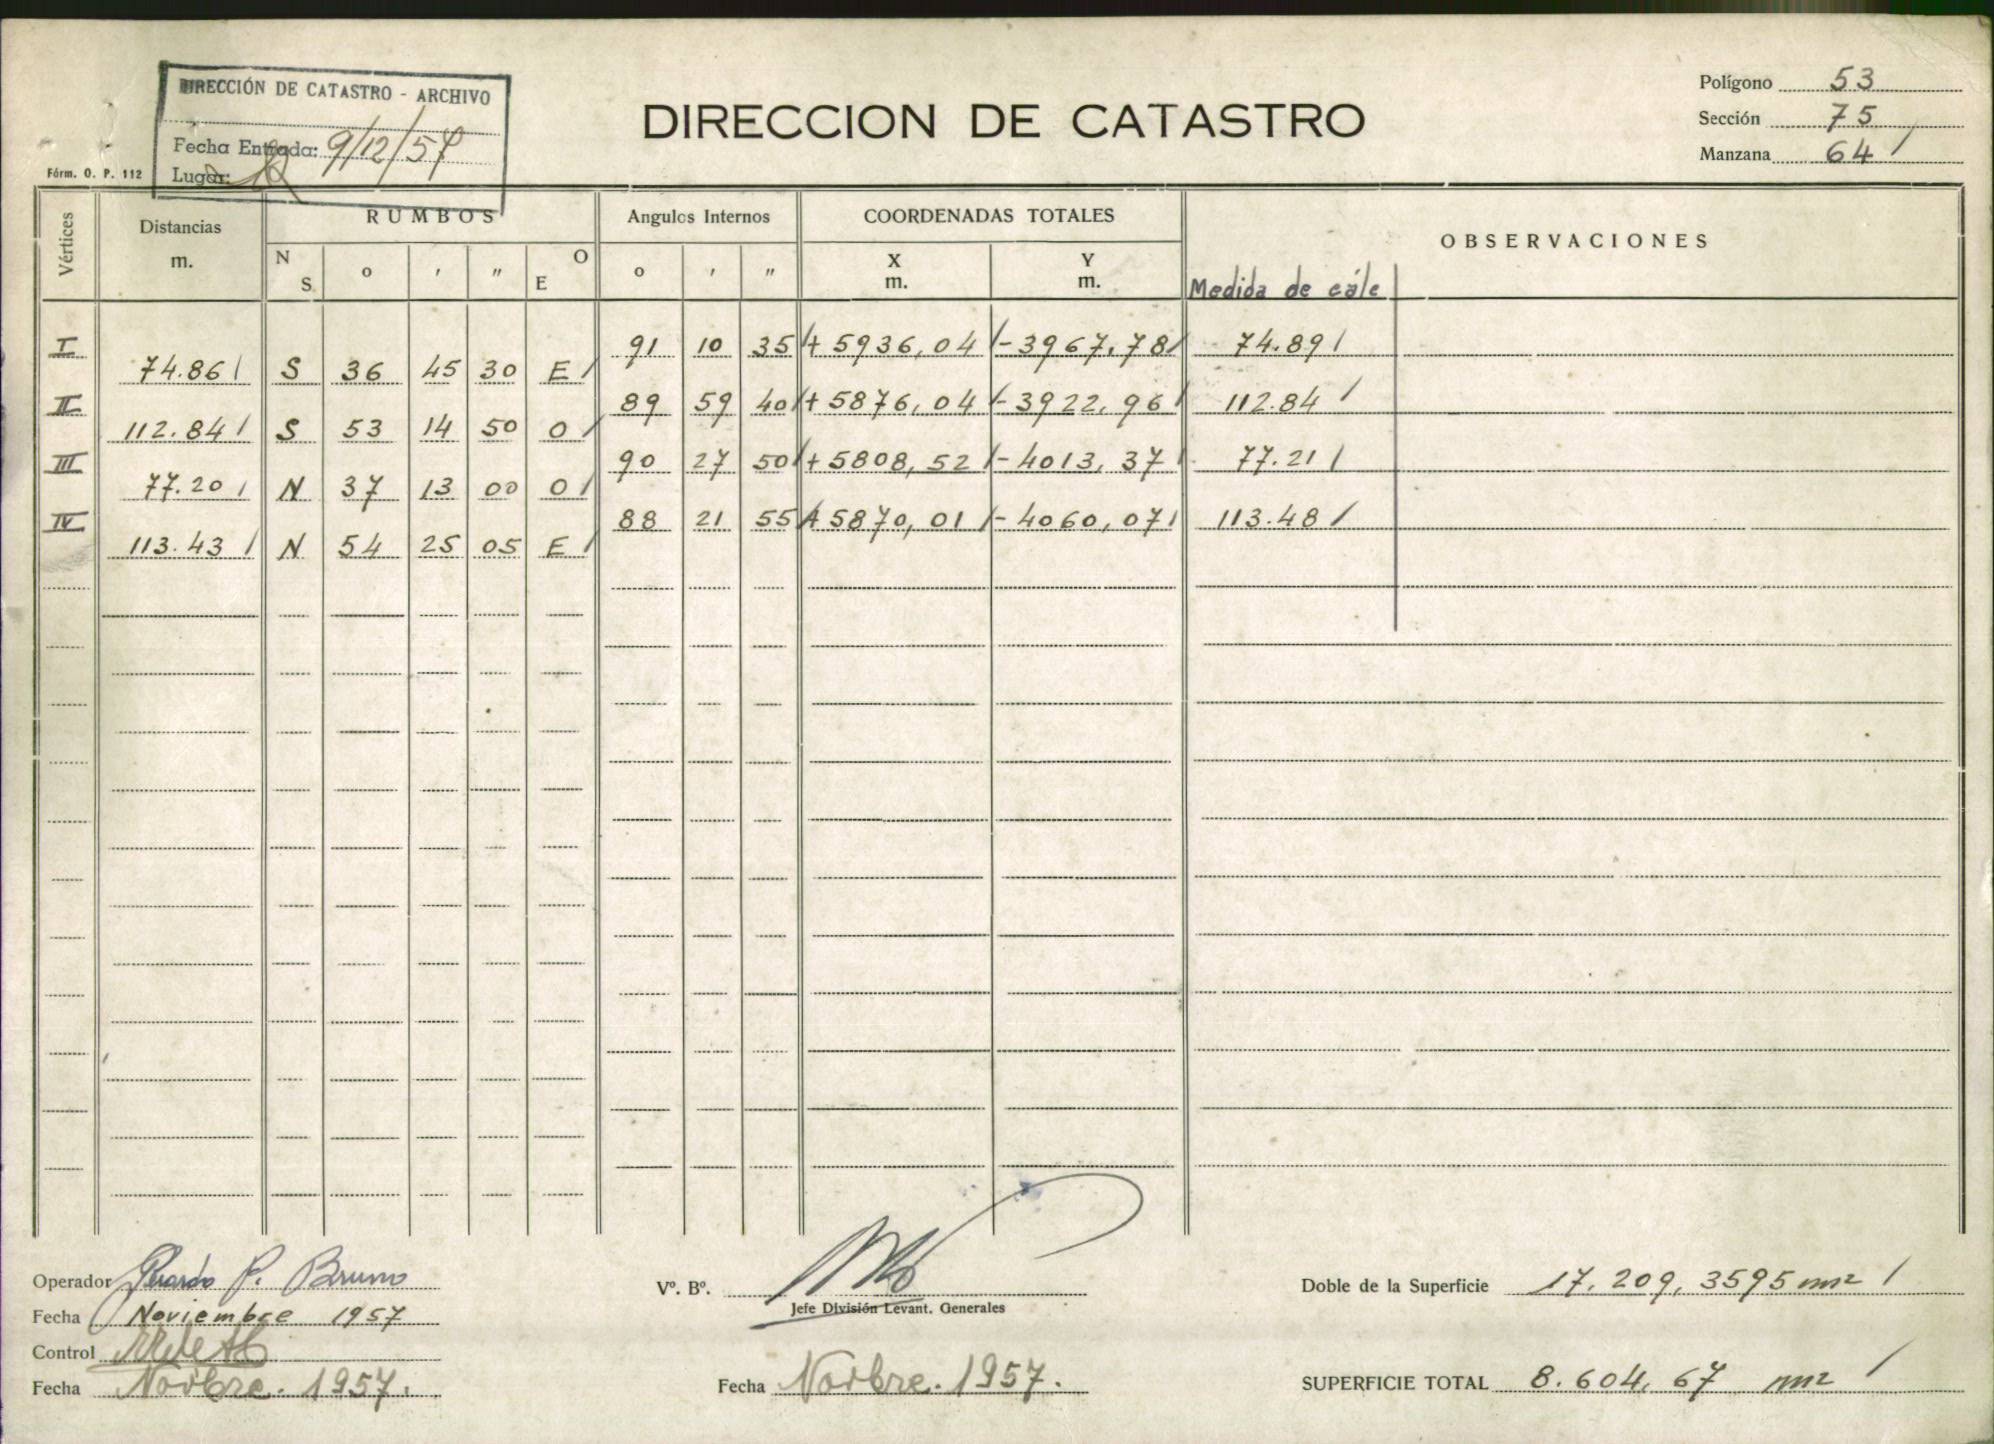 DIRECCIÓN DE CATASTRO - ARCHIVO
Fecha Entrada: 9/12/57
Lugar:
Fórm. O. P. 112
DIRECCION DE CATASTRO
Polígono 53
Sección 75
Manzana 64 /
Vértices
Distancias m.
RUMBOS
N S ° ' " E O
Angulos Internos
° ' "
COORDENADAS TOTALES
X m. Y m.
OBSERVACIONES
Medida de cálc
I 91 10 35 / + 5936,04 / - 3967,78 / 74.89 /
74.86 / S 36 45 30 E /
II 89 59 40 / + 5876,04 / - 3922,96 / 112.84 /
112.84 / S 53 14 50 O /
III 90 27 50 / + 5808,52 / - 4013,37 / 77.21 /
77.20 / N 37 13 00 O /
IV 88 21 55 / + 5870,01 / - 4060,07 / 113.48 /
113.43 / N 54 25 05 E /
Operador P. Bruno
Fecha Noviembre 1957
Control
Fecha Novbre. 1957.
Vº. Bº.
Jefe División Levant. Generales
Fecha Novbre. 1957.
Doble de la Superficie 17.209,3595 m2 /
SUPERFICIE TOTAL 8.604,67 m2 /